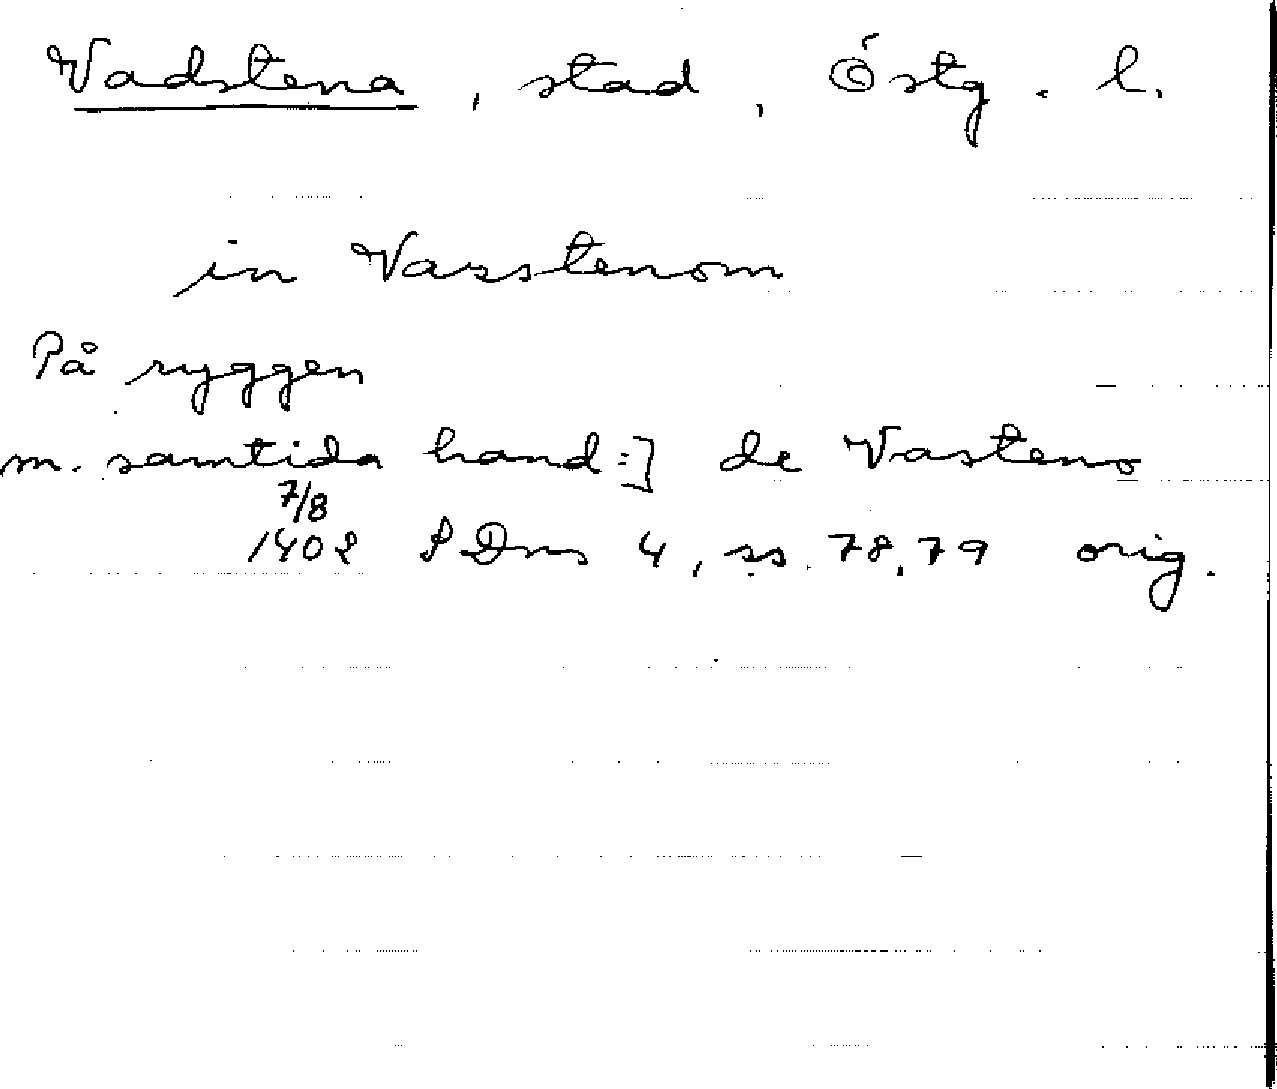 Vadstena, stad, Östg. l.
in Vazstenom
På ryggen
m. samtida hand:] de Vasteno
7/8
1402 SDns 4, ss. 78,79 orig.